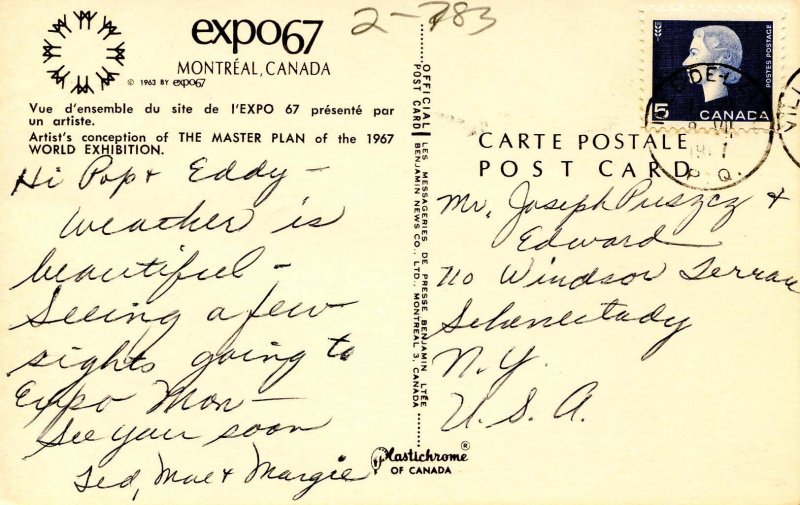 expo67
MONTRÉAL, CANADA
© 1963 BY expo67
Vue d'ensemble du site de l'EXPO 67 présenté par
un artiste.
Artist's conception of THE MASTER PLAN of the 1967
WORLD EXHIBITION.
2-783
Hi Pop & Eddy -
Weather is
beautiful -
Seeing a few
sights going to
Expo Mon -
See you soon
Ted, Mae & Margie
OFFICIAL POST CARD
LES MESSAGERIES DE PRESSE BENJAMIN LTÉE
BENJAMIN NEWS CO., LTD., MONTREAL 3, CANADA
Plastichrome®
OF CANADA
5
CANADA
POSTES POSTAGE
P. Q.
CARTE POSTALE
POST CARD
Mr. Joseph Puszcz &
Edward
710 Windsor Terrace
Schenectady
N. Y.
U. S. A.